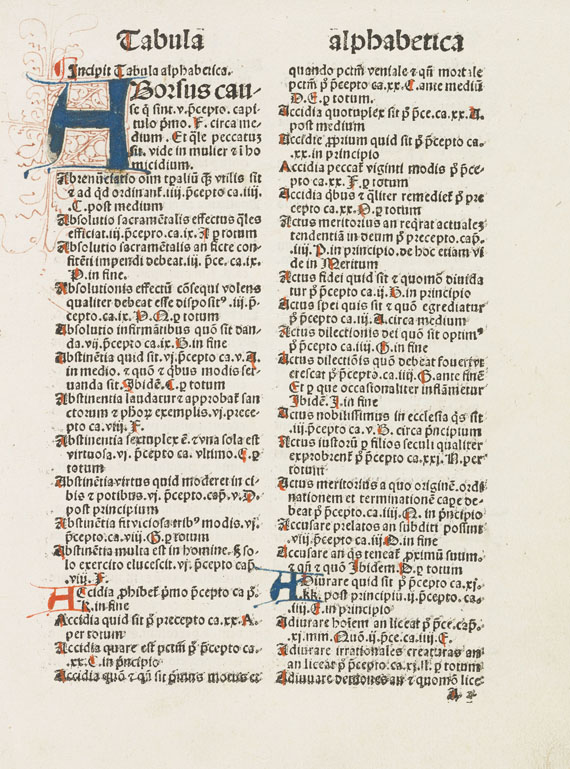 Tabula alphabetica
Incipit Tabula alphabetica.
ABorsus cau-
se q̃ sint .v. p̄cepto. capi
tulo pͥmo. F. circa me
dium. Et q̄le peccatuȝ
sit. vide in mulier ⁊ ĩ ho
micidium.
Abrenũciatio oĩm tp̃aliũ vtilis sit
⁊ ad qd ordinant̃ .iiij. p̄cepto ca. iiij
.C. post medium
Absolutio sacramẽtalis effectus q̃les
efficiat .iij. p̄cepto. ca. ix. A ꝑ totum
Absolutio sacramẽtalis an ficte con-
fitẽti impendi debeat .iij. p̄ce. ca. ix.
P. in fine.
Absolutionis effectũ cõsequi volens
qualiter debeat esse dispositꝰ .iij. p̄-
cepto ca. ix. P. Q. ꝑ totum
Absolutio infirmãtibus quõ sit dan-
da. vij. p̄cepto ca. ix. H. in fine
Abstinẽtia quid sit. vj. p̄cepto ca. v. A.
in medio. ⁊ quot ⁊ q̃bus modis ser
uanda sit. Ibidẽ. C. ꝑ totum
Abstinẽtia laudatur ⁊ approbat̃ san
ctorum ⁊ ph̃oꝝ exemplis. vj. prece-
pto ca. viij. F.
Abstinentia sextuplex ẽ. ⁊ vna sola est
virtuosa. vj. p̄cepto ca. vltimo. C. ꝑ
totum
Abstinẽtia virtus quid moderet̃ in ci-
bis ⁊ potibus. vj. p̄cepto. cap̃. v. D.
post principium
Abstinẽtia fit viciosa tribꝰ modis. vj.
p̄cepto. ca. viij. G. ꝑ totum
Abstinẽtia multa est in homine. ⁊ so-
lo exercito elucescit. vj. p̄cepto cap̃
.viij. F.
Accidia ꝓhibet̃ pͥmo p̄cepto ca p̃.
K. in fine
Accidia quid sit ꝑ precepto ca. xx. A.
per totum
Accidia quare est pctm̃ ꝑ p̄cepto ca-
.xx. C. in p̃ncipio
Accidia quõ ⁊ qñ sit pͥmus motus et
quando pctm̃ veniale ⁊ qñ mortale
pctm̃ ꝑ p̄cepto. ca. xx. C. ante mediũ
D. E. ꝑ totum.
Accidia quotuplex sit ꝑ p̄ce. ca. xx. A.
post medium
Accidie ꝓprium quid sit ꝑ p̄cepto ca
.xx. in principio
Accidia peccat̃ viginti modis ꝑ p̄ce-
pto ca. xx. F. ꝑ totum
Accidia q̃bus ⁊ q̃liter remediet̃ ꝑ pre
cepto ca. xx. P. ꝑ totum
Actus meritorius an req̃rat actualeȝ
tendentiã in deum ꝑ precepto. cap̃.
.iiij. P. in principio. de hoc etiam vi
de in Meritum
Actus fidei quid sit ⁊ quomõ diuida
tur ꝑ p̄cepto ca. ij. H. in principio
Actus spei quis sit ⁊ quõ egrediatur
ꝑ p̄cepto ca. iij. A. circa medium
Actus dilectionis dei quõ sit optimꝰ
ꝑ p̄cepto ca. iiij. G. in fine
Actus dilectiõis quõ debeat foueri vt
crescat ꝑ p̄cepto. ca. iiij. G. ante finẽ
Et ꝑ que occasionaliter inflãmetur
Ibidẽ. I. in fine
Actus nobilissimus in ecclesia q̃s sit
.iij. p̄cepto ca. v. G. circa p̃ncipium
Actus iustorũ ꝑ filios seculi qualiter
exprobrent̃ ꝑ p̄cepto ca. xxj. N. per
totum
Actus meritorius a quo originẽ. ordi
nationem et terminationẽ cape de-
beat ꝑ p̄cepto. ca. iiij. N. in p̃ncipio
Accusare prelatos an subditi possint
.viij. p̄cepto ca. iij. O. in fine
Accusare an q̃s teneat̃ ꝓximũ suum.
⁊ qñ ⁊ quõ Ibidem. P. ꝑ totum
Adiurare quid sit ꝑ p̄cepto ca. xj.
.kk. post principiũ. ij. p̄cepto ca-
.iiij. E. in principio
Adiurare hoĩem an liceat ꝑ p̄ce. cap̃.
.xj. mm. Quõ .ij. p̄ce. ca. iiij. E.
Adiurare irrationales creaturas an
an liceat ꝑ p̄cepto. ca. xj. ll. ꝑ totum
Adiuuare demones an ⁊ quomõ lice